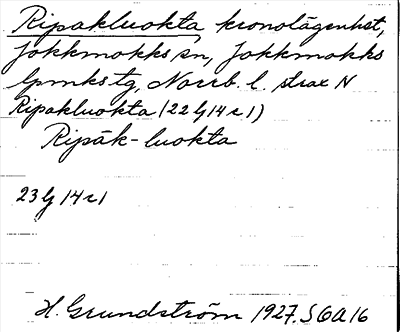 Ripakluokta kronolägenhet,
Jokkmokks sn, Jokkmokks
lpmks tg, Norrb. l. strax N
Ripakluokta (22 h 14 c 1)
Ripăk-luokta
23 h 14 c 1
H. Grundström 1927. S 6A 16